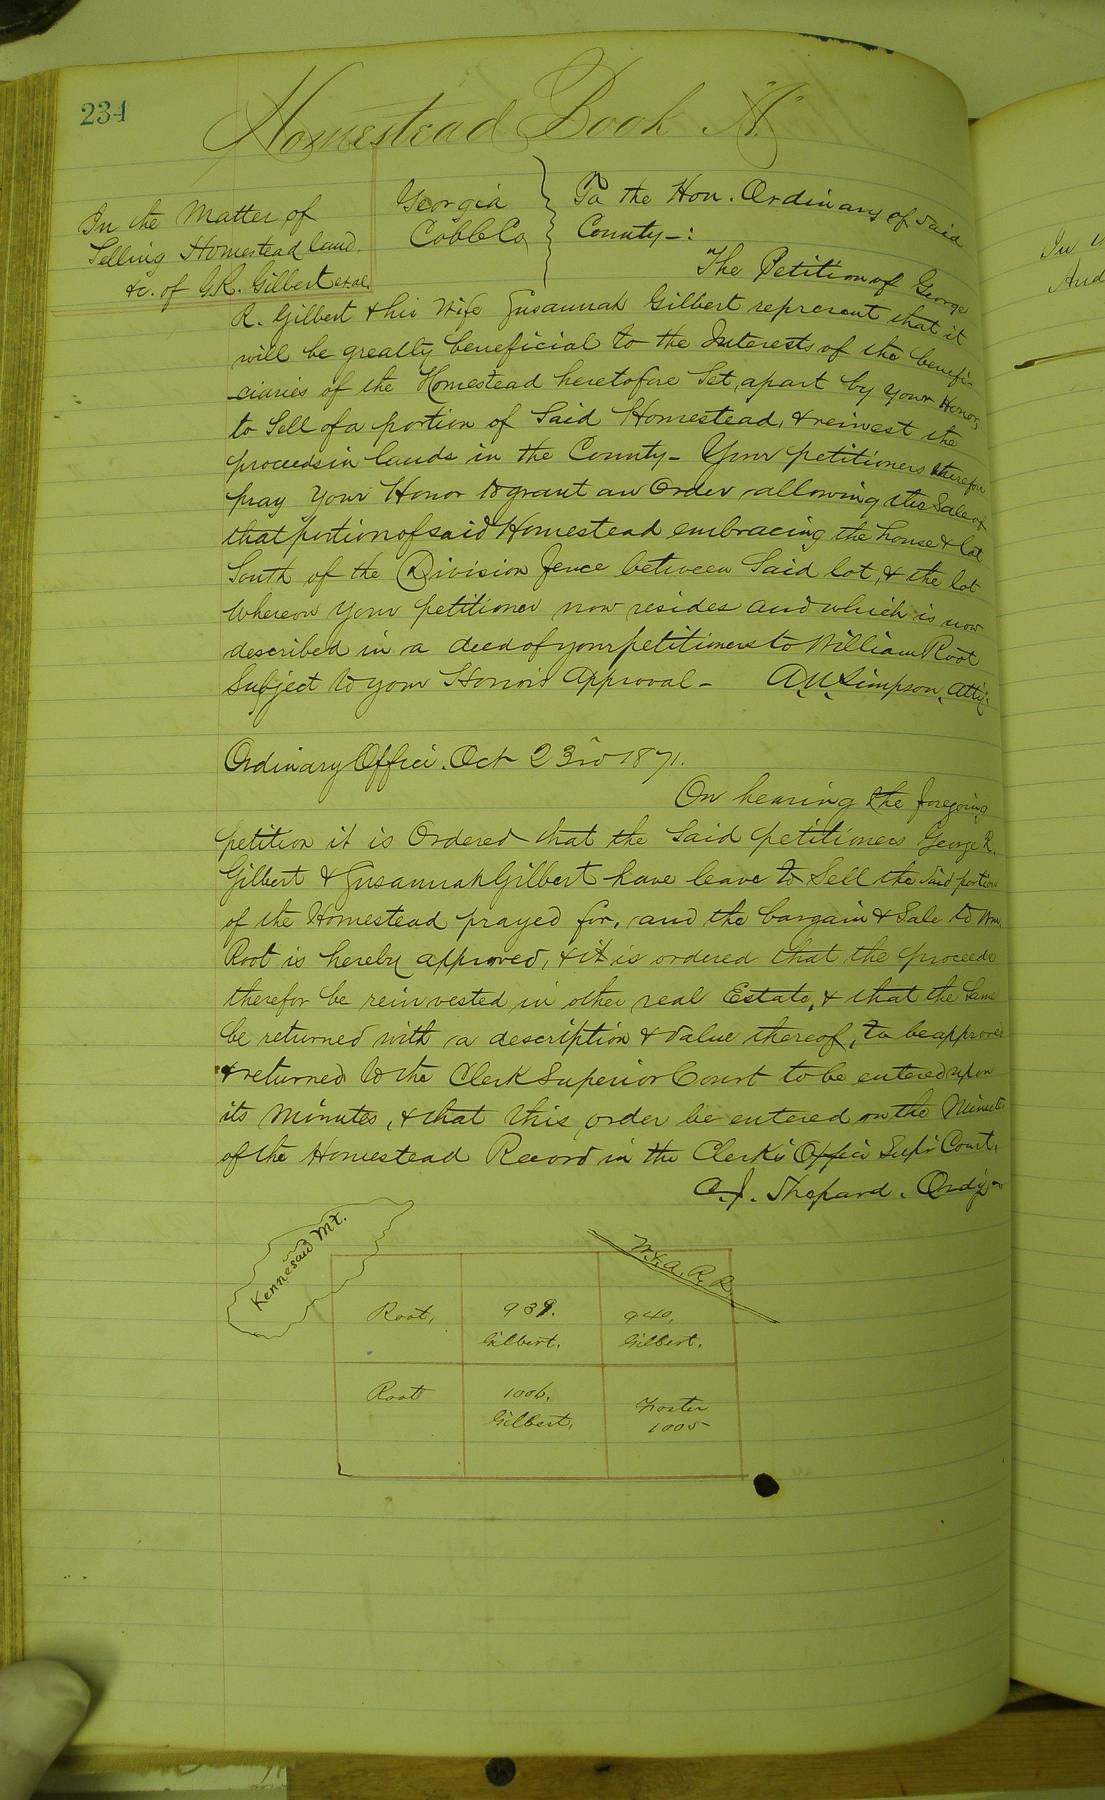 234
Homestead Book "A"
In the Matter of
Selling Homestead land
&c. of G.R. Gilbert et al.
Georgia
Cobb Co
To the Hon. Ordinary of Said
County—:
The Petition of George
R. Gilbert & his Wife Susannah Gilbert represent that it
will be greatly beneficial to the Interests of the benefi-
ciaries of the Homestead heretofore Set apart by your Honor,
to Sell of a portion of Said Homestead, & reinvest the
proceeds in lands in the County— Your petitioners therefore
pray Your Honor to grant an Order allowing the Sale of
that portion of said Homestead embracing the house & lot
South of the Division fence between Said lot, & the lot
Whereon your petitioner now resides and which is now
described in a deed of your petitioners to William Root
Subject to your Honors Approval— A.N. Simpson, Atty.
Ordinary Office. Oct 23rd 1871.
On hearing the foregoing
petition it is Ordered that the Said petitioners George R.
Gilbert & Susannah Gilbert have leave to Sell the Said portion
of the Homestead prayed for, and the bargain & Sale to Wm.
Root is hereby approved, & it is ordered that the proceeds
therefor be reinvested in other real Estate, & that the Same
be returned with a description & value thereof, to be approved
& returned to the Clerk Superior Court to be entered upon
its Minutes, & that this order be entered on the Minutes
of the Homestead Record in the Clerk's Office Supr Court.
A.J. Shepard. Ordy
Kennesaw Mt.
W. & A. R. R.
Root,
939.
Gilbert.
940,
Gilbert.
Root
1006.
Gilbert,
Foster
1005
In
And